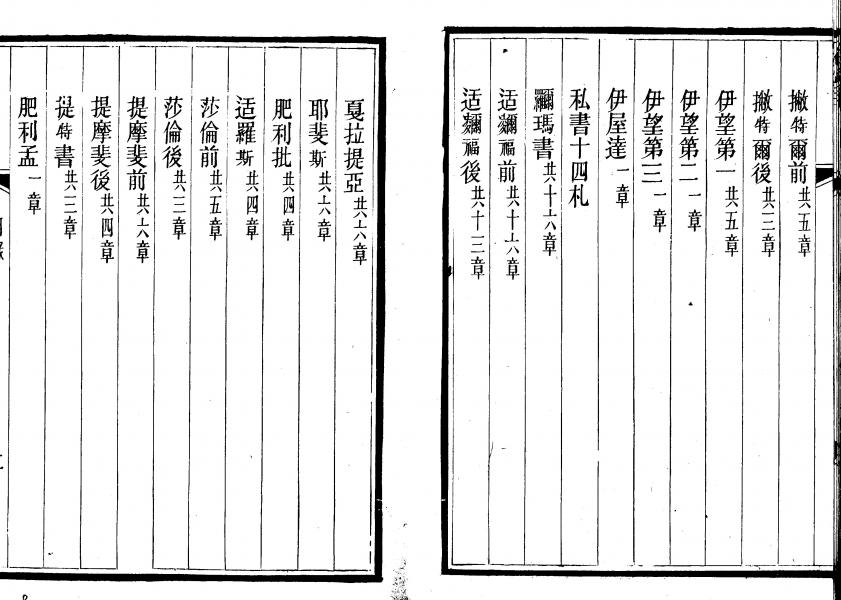 撤特爾前共五章
撤特爾後共三章
伊望第一共五章
伊望第二一章
伊望第三一章
伊屋達一章
私書十四札
羅瑪書共十六章
适福前共十六章
适福後共十三章
戛拉提亞共六章
耶斐斯共六章
肥利批共四章
适羅斯共四章
莎倫前共五章
莎倫後共三章
提摩斐前共六章
提摩斐後共四章
提特書共三章
肥利孟一章